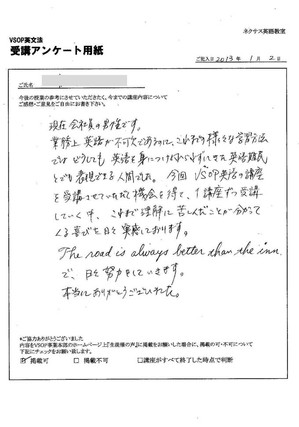 ネクサス英語教室
VSOP英文法
受講アンケート用紙
ご記入日 2013年 1月 2日
ご氏名
今後の授業の参考にさせていただきたく、今までの講座内容について
ご感想・ご意見をご自由にお書き下さい。
現在会社員の男性です。
業務上英語が不可欠であるのに、これまで様々な学習方法
ではどうしても英語を身につけられずにきた英語難民
とでも表現できる人間でした。今回VSOP英語の講座
を受講させていただく機会を得て、1講座ずつ受講
していく中、これまで理解に苦しんだことが分かって
くる喜びを日々実感しております。
The road is always better than the inn.
で、日々努力をしていきます。
本当にありがとうございました。
*ご協力ありがとうございました
内容をVSOP事業本部のホームページ上「生徒様の声」に掲載をお願いした場合に、掲載の可・不可について
下記にチェックをお願い致します。
掲載可
掲載不可
講座がすべて終了した時点で判断